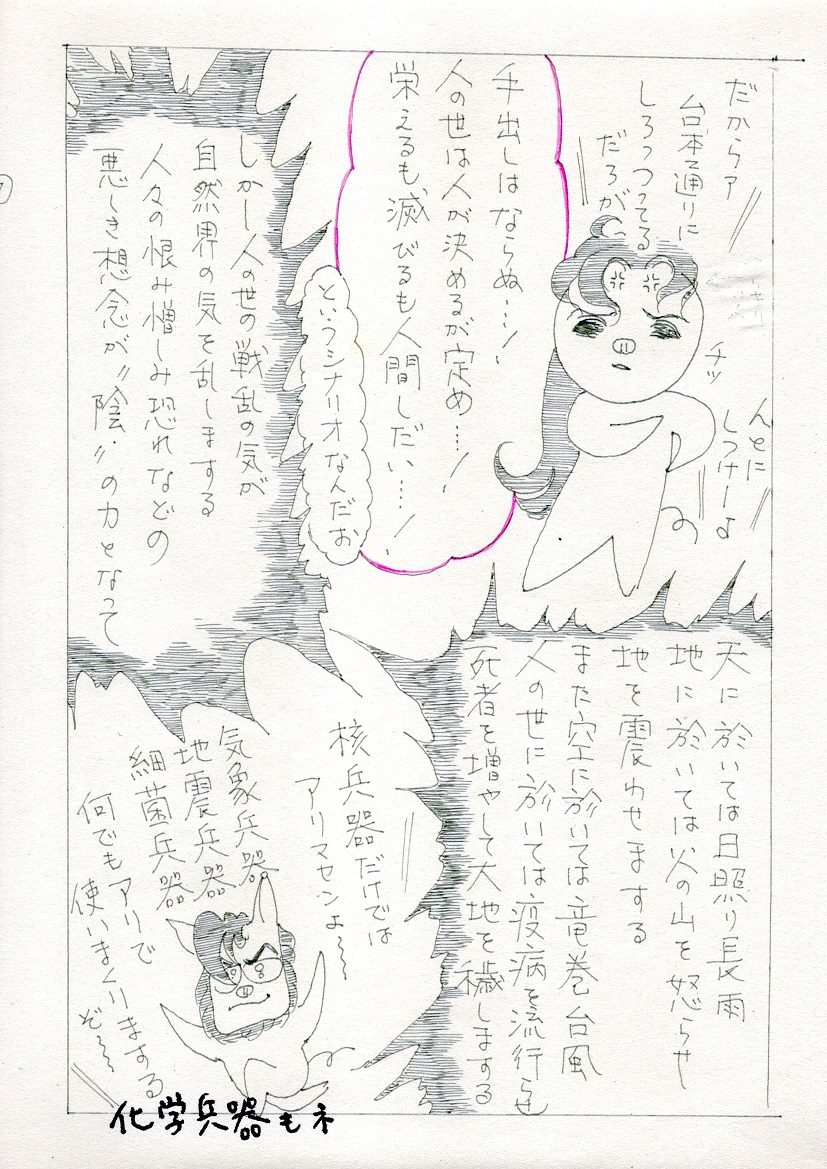 だからァ
台本通りに
しろっつってる
だろが〜
チッ
んとに
しつけーよ
手出しはならぬ…！
人の世は人が決めるが定め…！
栄えるも滅びるも人間しだい…！
というシナリオなんだお
しかし人の世の戦乱の気が
自然界の気を乱しまする
人々の恨み憎しみ恐れなどの
悪しき想念が〝陰〟の力となって
天に於いては日照り長雨
地に於いては火の山を怒らせ
地を震わせまする
また空に於いては竜巻台風
人の世に於いては疫病を流行らせ
死者を増やして大地を穢しまする
核兵器だけでは
アリマセンよ〜〜
気象兵器
地震兵器
細菌兵器
何でもアリで
使いまくりまする
ぞ〜〜
化学兵器もネ